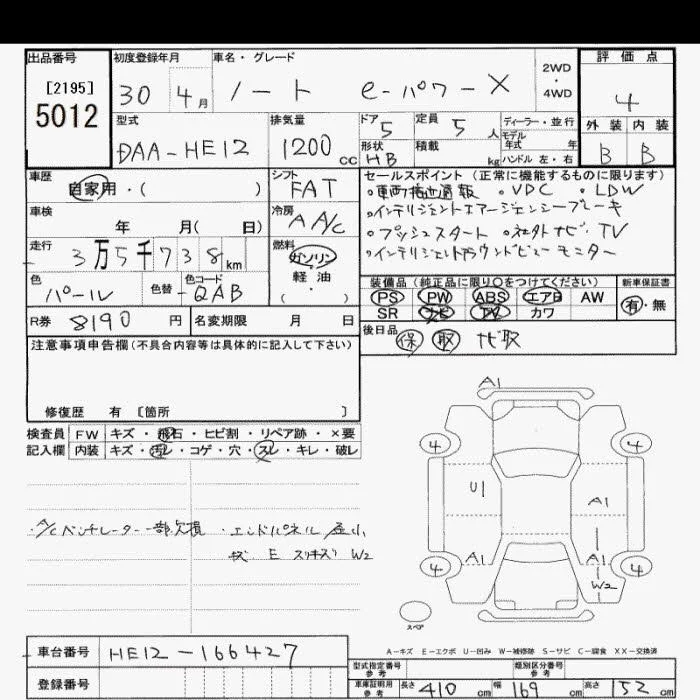 出品番号 初度登録年月 車名・グレード 2WD・4WD 評価点
[2195]
5012
30 4月 ノート e-パワー X 4
型式 排気量 ドア 定員 ディーラー・並行 外装 内装
DAA-HE12 1200cc 5 5人 モデル年式 年 B B
形状 積載 kg ハンドル 左・右
HB
車歴 シフト セールスポイント(正常に機能するものに限ります)
自家用・( ) FAT
・車両接近通報 ・VDC ・LDW
車検 冷房 ・インテリジェントエマージェンシーブレーキ
年 月( 日) A A/C ・プッシュスタート ・社外ナビ TV
走行 燃料 ・インテリジェントアラウンドビューモニター
3万5千738km ガソリン
軽・油
・( )
色 色替 色コード 装備品(純正品に限り○をつけてください) 新車保証書
パール - QAB PS PW ABS エアB AW 有・無
SR ナビ TV カワ
R券 8190円 名変期限 月 日 後日品 保 取 ナビ取
注意事項申告欄(不具合内容等は具体的に記入して下さい)
修復歴 有 [箇所 ]
検査員 FW キズ・飛石・ヒビ割・リペア跡・×要
記入欄 内装 キズ・汚レ・コゲ・穴・スレ・キレ・破レ
・A/Cベンチレーター一部欠損 ・エンドパネル 歪小
E スリキズ W2
A1
4 4
U1 A1
A1 A1
4 W2 4
スペア
A-キズ E-エクボ U-凹み W-補修跡 S-サビ C-腐食 XX-交換済
車台番号 HE12-166427
登録番号
型式指定番号 参考 類別区分番号 参考
車庫証明用 参考 長さ 410cm 幅 169cm 高さ 152cm